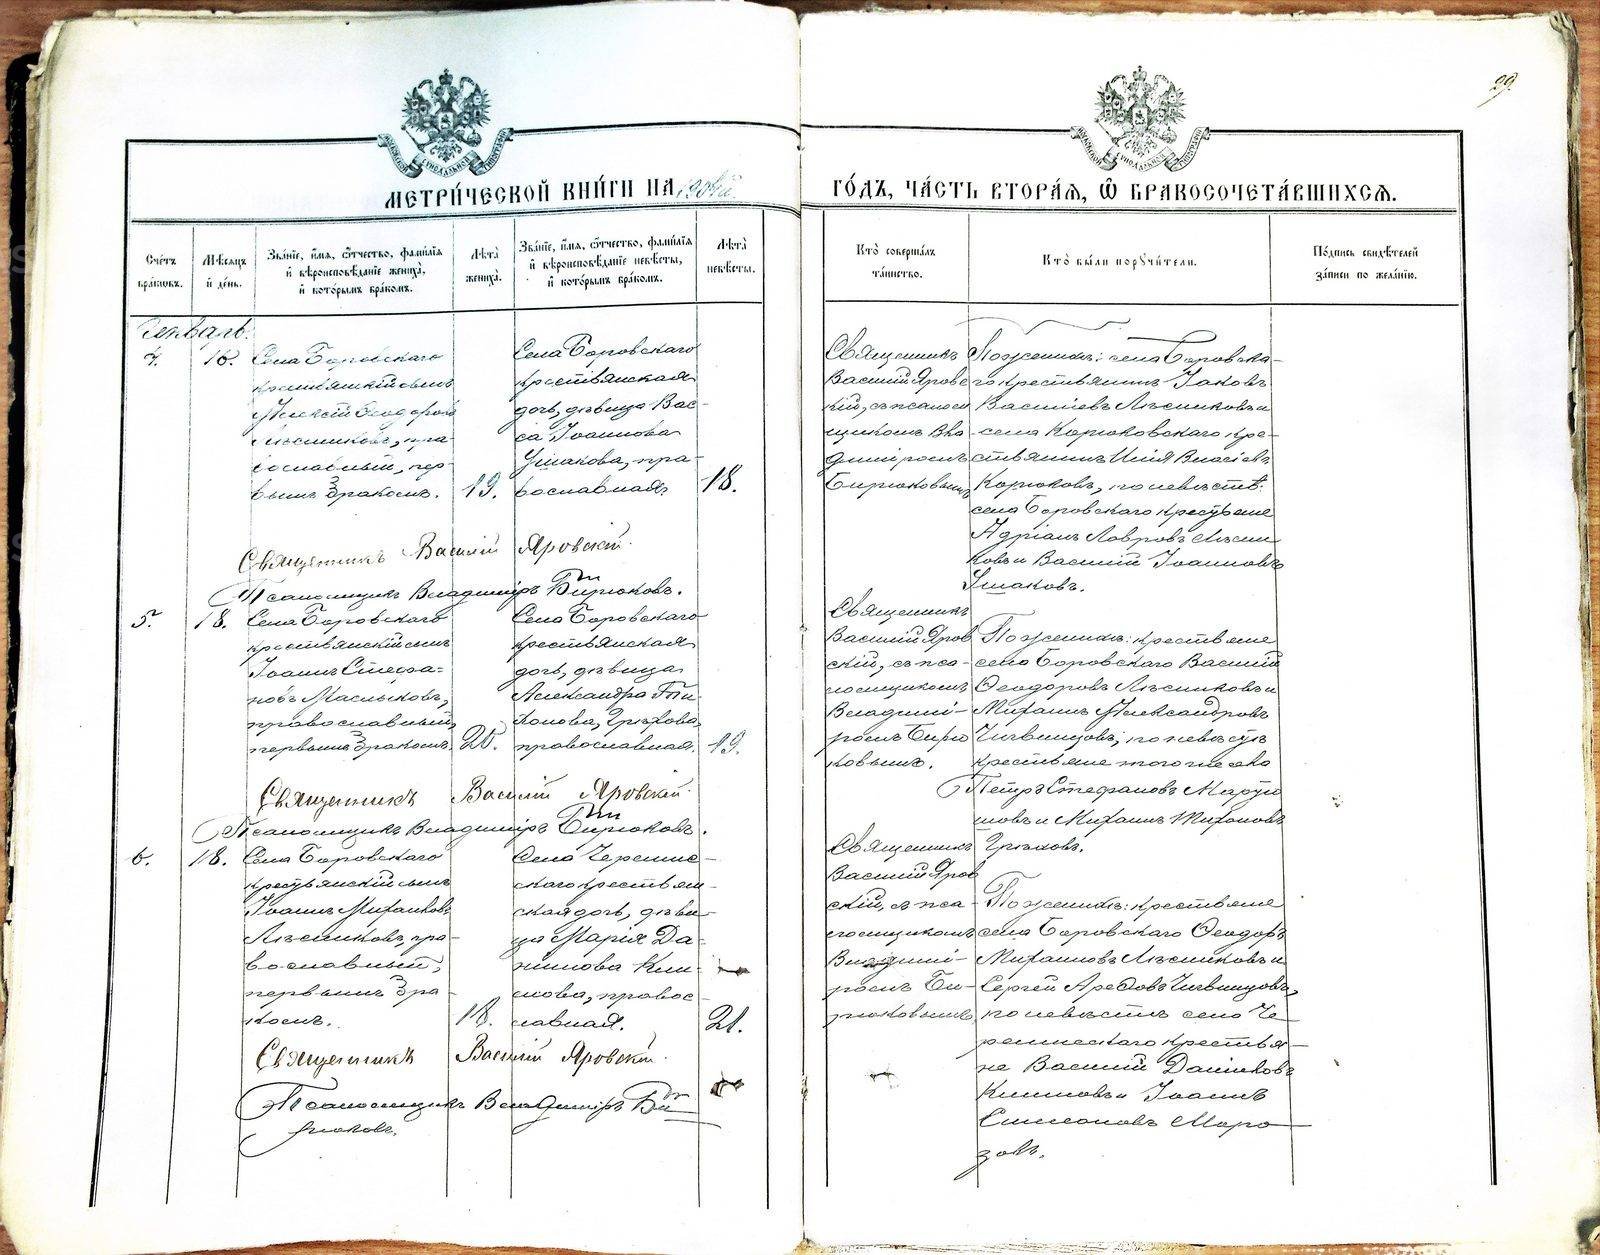 29.
МЕТРИ́ЧЕСКОЙ КНИ́ГИ НА 1904й
ГО́ДЪ, ЧА́СТЬ ВТОРА́Я, Ѿ БРАКОСОЧЕТА́ВШИХСЯ.
Сче́тъ бра́ковъ.
Мѣ́сяцъ и҆ де́нь.
Зва́нїе, и҆́мя, о҆́тчество, фами́лїя
и҆ вѣроисповѣ́данїе жениха̀,
и҆ кото́рымъ бра́комъ.
Лѣ́та жениха̀.
Зва́нїе, и҆́мя, о҆́тчество, фами́лїя
и҆ вѣроисповѣ́данїе невѣ́сты,
и҆ кото́рымъ бра́комъ.
Лѣ́та невѣ́сты.
Кто̀ соверша́лъ
та́инство.
Кто̀ бы́ли порꙋчи́тели.
По́дпись свидѣ́телей
за́писи по жела́нїю.
Январь.
4.
18.
Села Боровскаго
крестьянскій сынъ
Алексій Ѳеодоровъ
Лѣсниковъ, пра-
вославный, пер-
вымъ бракомъ.
19.
Села Боровскаго
крестьянская
дочь, дѣвица Вас-
са Іоаннова
Ушакова, пра-
вославная
18.
Священникъ
Василій Яровс
кій, съ псалом
щикомъ Вла
диміромъ
Бирюковымъ
По женихѣ: села Боровска-
го крестьянинъ Іаковъ
Василіевъ Лѣсниковъ и
села Корюковскаго кре-
стьянинъ Илія Власіевъ
Корюковъ, по невѣстѣ:
села Боровскаго крестьяне
Адріанъ Лавровъ Лѣсни
ковъ и Василій Іоанновъ
Ушаковъ.
Священникъ Василій Яровскій.
Псаломщикъ Владиміръ Бирюковъ.
5.
18.
Села Боровскаго
крестьянскій сынъ
Іоаннъ Стефа-
новъ Масльковъ,
православный,
первымъ бракомъ.
20.
Села Боровскаго
крестьянская
дочь, дѣвица
Александра Ти-
хонова, Грѣхова,
православная.
19.
Священникъ
Василій Яров
скій, съ пса-
ломщикомъ
Владимі-
ромъ Бирю
ковымъ.
По женихѣ: крестьяне
села Боровскаго Василій
Ѳеодоровъ Лѣсниковъ и
Михаилъ Александровъ
Чивинцовъ; по невѣстѣ
крестьяне того же села
Петръ Стефановъ
шовъ и Михаилъ Тихоновъ
Грѣховъ.
Священникъ Василій Яровскій.
Псаломщикъ Владиміръ Бирюковъ.
6.
18.
Села Боровскаго
крестьянскій сынъ
Іоаннъ Михаиловъ
Лѣсниковъ, пра-
вославный,
первымъ бра-
комъ.
18.
Села Черемис-
скаго крестьян-
ская дочь, дѣви-
ца Марія Да-
ніилова Кли-
мова, правос-
лавная.
21.
Священникъ
Василій Яров
скій, съ пса-
ломщикомъ
Владимі-
ромъ Би-
рюковымъ
По женихѣ: крестьяне
села Боровскаго Ѳеодоръ
Михаиловъ Лѣсниковъ и
Сергей Чивинцовъ,
по невѣстѣ села Че
ремисскаго крестья-
не Василій Даніиловъ
Климовъ и Іоаннъ
Симеоновъ Моро-
зовъ.
Священникъ Василій Яровскій.
Псаломщикъ Владиміръ Би-
рюковъ.